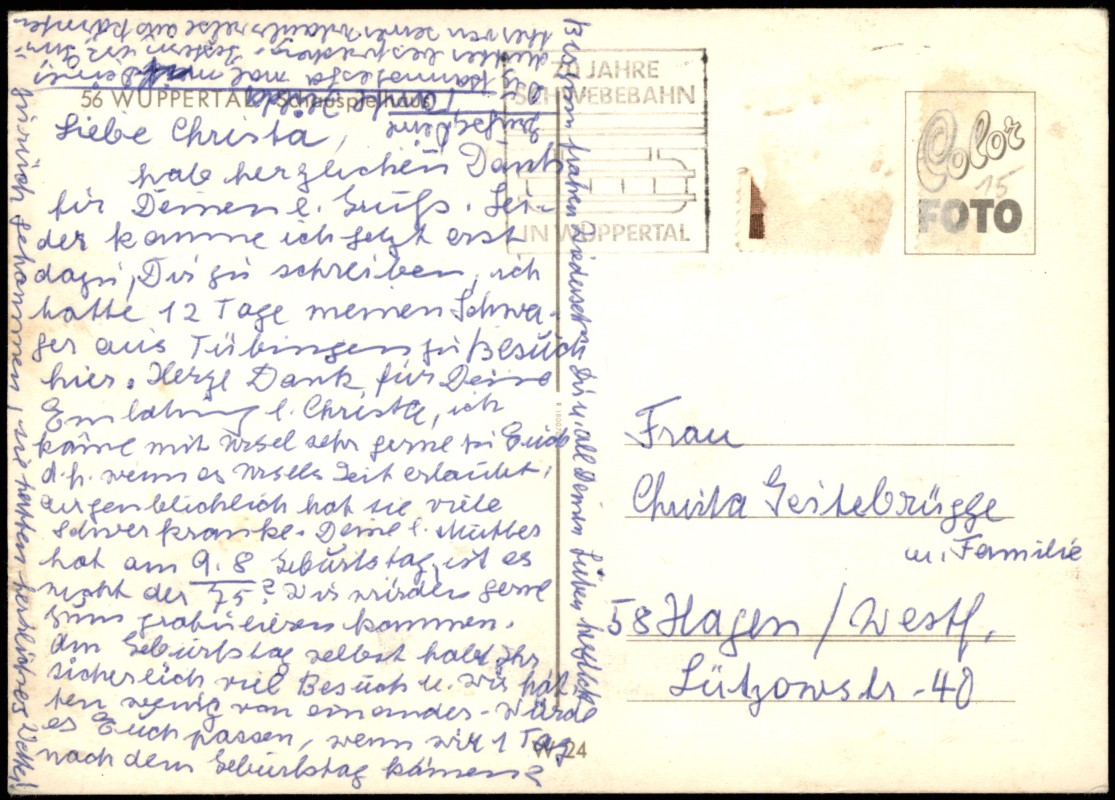 56 WUPPERTAL Schauspielhaus
Liebe Christa,
hab herzlichen Dank
für Deinen l. Gruß. Lei-
der komme ich jetzt erst
dazu, Dir zu schreiben, ich
hatte 12 Tage meinen Schwa-
ger aus Tübingen zu Besuch
hier. Herzl Dank für Deine
Einladung l. Christa, ich
käme mit Ursel sehr gerne zu Euch
d.h. wenn es Ursels Zeit erlaubt,
augenblicklich hat sie viele
Schwerkranke. Deine l. Mutter
hat am 9.8 Geburtstag, ist es
nicht der 75? Wir würden gerne
zum gratulieren kommen.
Am Geburtstag selbst habt ihr
sicherlich viel Besuch u. wir hät-
ten wenig von einander. Würde
es Euch passen, wenn wir 1 Tag
nach dem Geburtstag kämen?
Bis dahin frohen Wiedersehn Dir u. all Deinen Lieben herzlich
zurück gekommen, sie hatten herrliches Wetter!
70 JAHRE
SCHWEBEBAHN
IN WUPPERTAL
Color
15
FOTO
Frau
Christa Geitebrügge
u. Familie
58 Hagen / Westf.
Lützowstr - 40
W 24